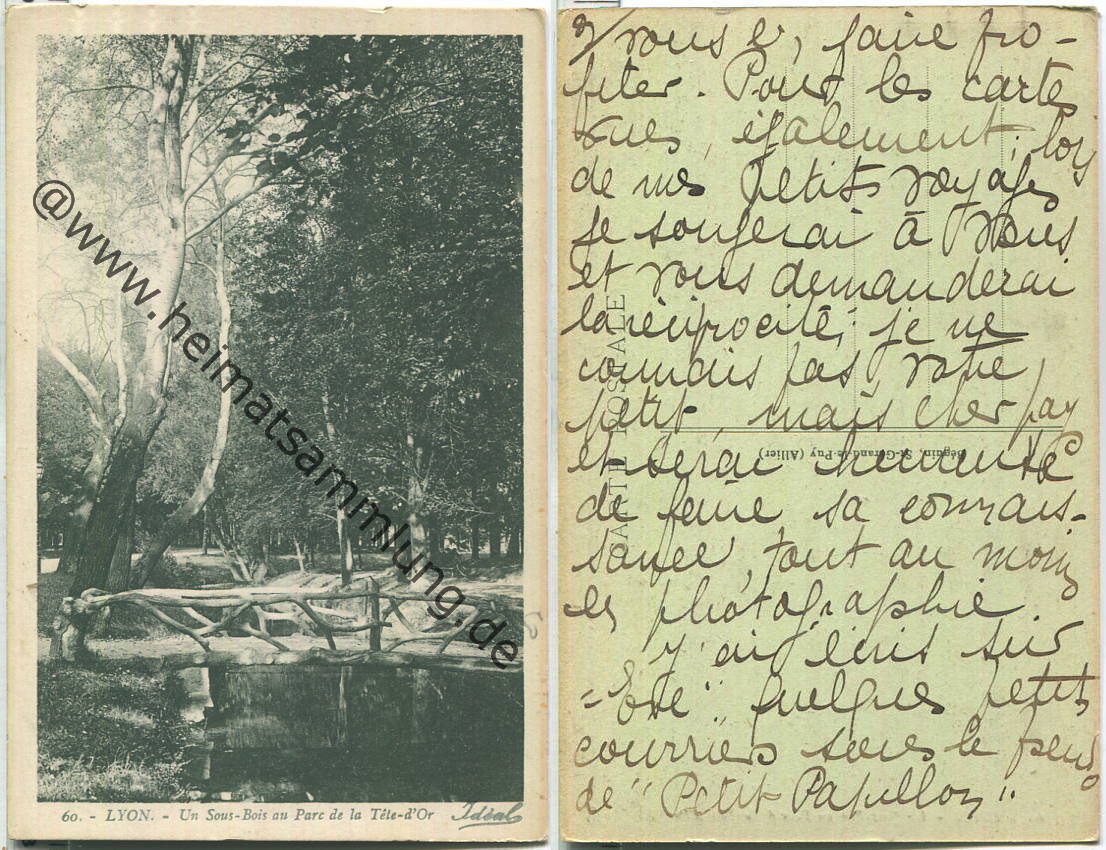 @www.heimatsammlung.de
60. - LYON. - Un Sous-Bois au Parc de la Tête-d'Or
Idéal
2/ vous en faire pro-
fiter. Pour les cartes
vues, également; lors
de mes petits voyages
je songerai à vous
et vous demanderai
la réciprocité; je ne
connais pas votre
petit, mais cher pays
et serai
de faire sa connais-
sance, tout au moins
en photographie
J'ai écris sur
"Eve" quelques petits
courriers sous le pseudo
de "Petit Papillon"
CARTE POSTALE
Béguin, St-Gérand-le-Puy (Allier)